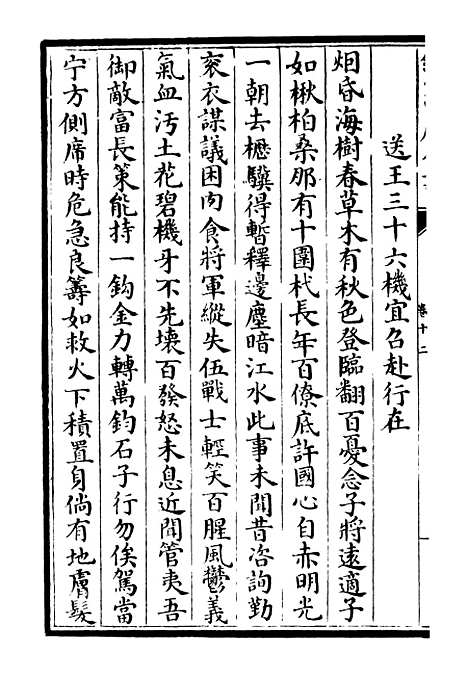 送王三十六機宜召赴行在
炯昏海樹春草木有秋色登臨翻百憂念子將遠適子
如楸柏桑那有十圍杙長年百僚底許國心自赤明光
一朝去櫪驥得暫釋邊塵暗江水此事未聞昔咨詢勤
衮衣謀議困肉食將軍縱失伍戰士輕笑百腥風鬱義
氣血污土花碧機牙不先壞百發怒未息近聞管夷吾
御敵富長策能持一鈞金力轉萬鈞石子行勿俟駕當
宁方側席時危急良籌如救火下積置身倘有地膚髮
卷十二